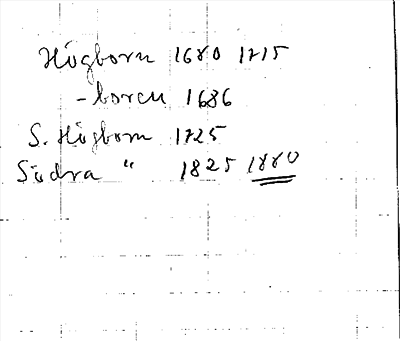 Högborn 1680 1715
-boren 1686
S. Högborn 1725
Södra " 1825 1880